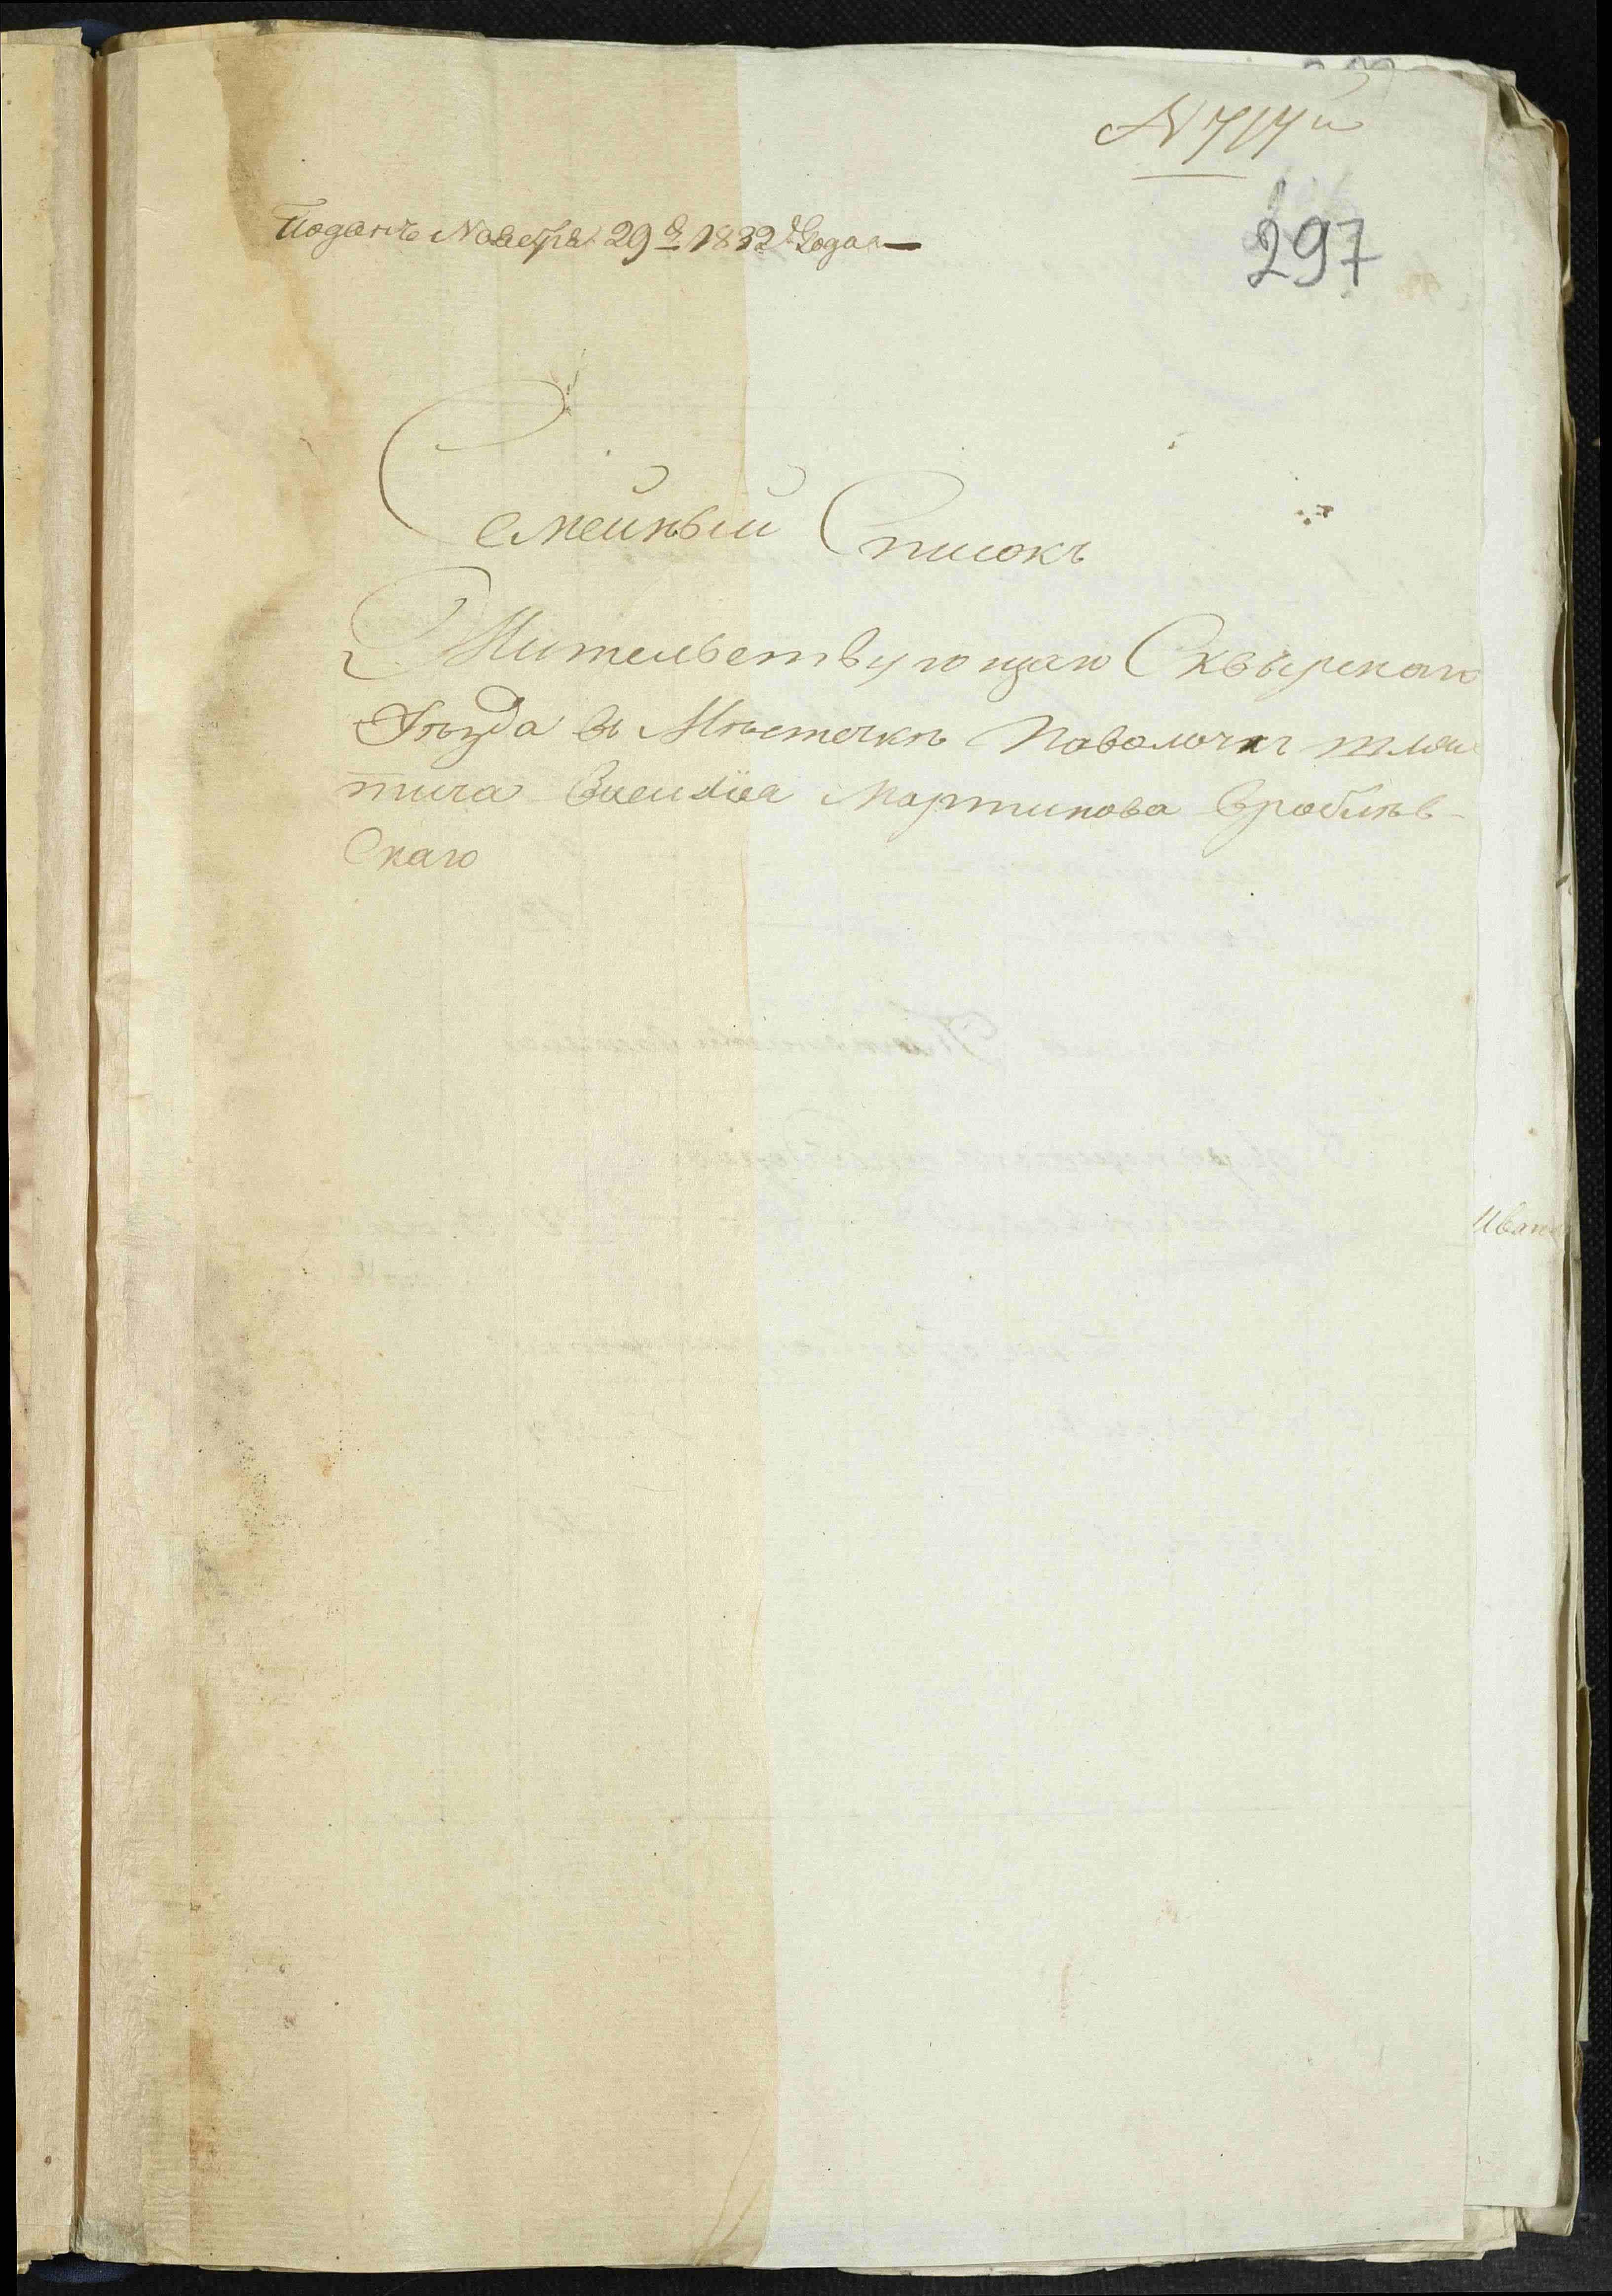 N 717й
297
Поданъ Ноября 29 д 1832 Года
Семейный Списокъ
Жительствующаго Сквырскаго
Уѣзда въ Мѣстечкѣ Паволочи шлях
тича Мартинова Вроблѣв-
Скаго
Иван